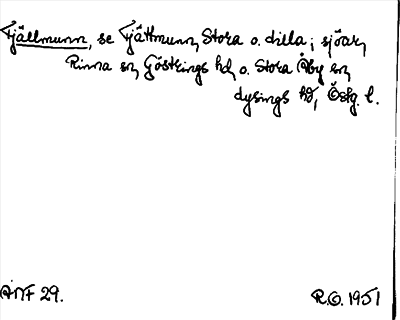 Fjällmunn, se Fjättmunn, Stora o. Lilla; sjöar,
Rinna sn, Göstrings hd, o. Stora Åby sn,
Lysings hd, Östg. l.
ANF 29.
R.O. 1951